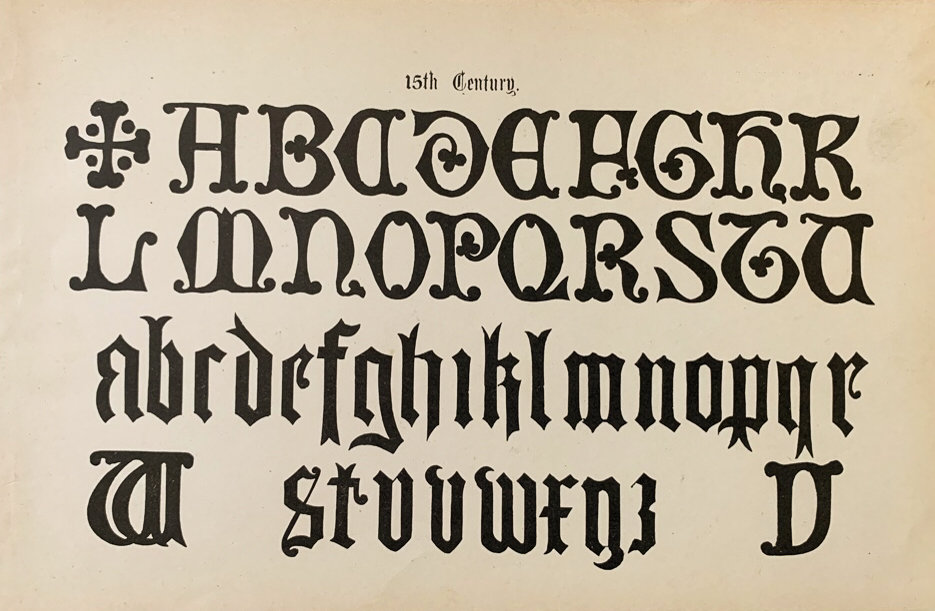 15th Century.
ABCDEFGHK
LMNOPQRSTU
abcdefghıklmnopqr
W stuvwxyz V